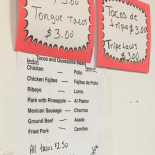 $3.00
Tongue tacos
$3.00
Tacos de
tripa $3.00
Tripe tacos
$3.00
Tacos and Quesadilla Meats
Chicken — Pollo
Chicken Fajitas — Fajitas de Pollo
Ribeye — Lomo
Pork with Pineapple — Al Pastor
Mexican Sausage — Chorizo
Ground Beef — Asada
Fried Pork — Carnitas
All tacos $2.50